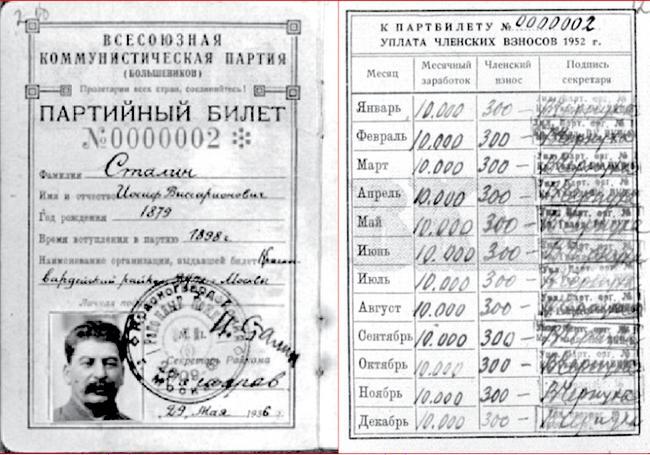 ВСЕСОЮЗНАЯ
КОММУНИСТИЧЕСКАЯ ПАРТИЯ
(БОЛЬШЕВИКОВ)
Пролетарии всех стран, соединяйтесь!
ПАРТИЙНЫЙ БИЛЕТ
№0000002
Фамилия Сталин
Имя и отчество Иосиф Виссарионович
Год рождения 1879
Время вступления в партию 1898 г.
Наименование организации, выдавшей билет Красно
гвардейский райком г. Москвы
Личная
И. Сталин
М. П.
Секретарь Райкома
29 Мая 1936 г.
К ПАРТБИЛЕТУ № 0000002
УПЛАТА ЧЛЕНСКИХ ВЗНОСОВ 1952 г.
Месяц Месячный заработок Членский взнос Подпись секретаря
Январь 10.000 300 —
Февраль 10.000 300 —
Март 10.000 300 —
Апрель 10.000 300 —
Май 10.000 300 —
Июнь 10.000 300 —
Июль 10.000 300 —
Август 10.000 300 —
Сентябрь 10.000 300 —
Октябрь 10.000 300 —
Ноябрь 10.000 300 —
Декабрь 10.000 300 —